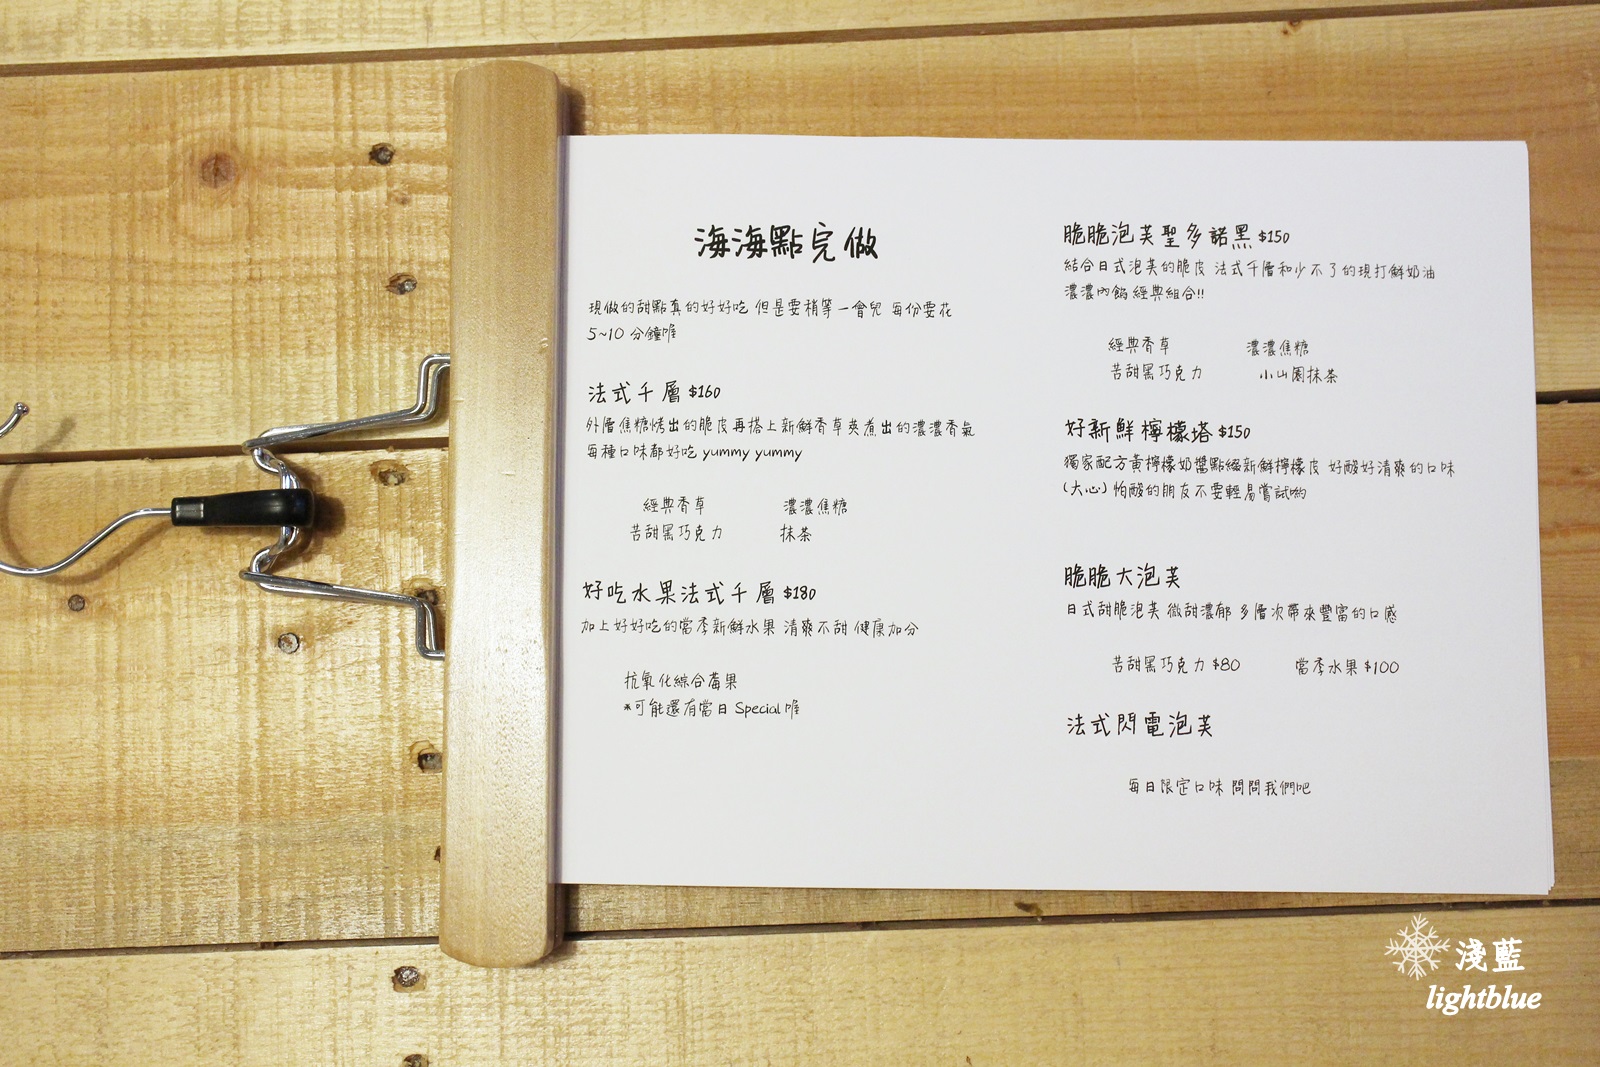 海海點完做
現做的甜點真的好好吃 但是要稍等一會兒 每份要花
5~10 分鐘唯
法式千層 $160
外層焦糖烤出的脆皮再搭上新鮮香草莢煮出的濃濃香氣
每種口味都好吃 yummy yummy
經典香草 濃濃焦糖
苦甜黑巧克力 抹茶
好吃水果法式千層 $180
加上好好吃的當季新鮮水果 清爽不甜 健康加分
抗氧化綜合莓果
*可能還有當日 Special 唯
脆脆泡芙聖多諾黑 $150
結合日式泡芙的脆皮 法式千層和少不了的現打鮮奶油
濃濃內餡 經典組合!!
經典香草 濃濃焦糖
苦甜黑巧克力 小山園抹茶
好新鮮檸檬塔 $150
獨家配方黃檸檬奶醬點綴新鮮檸檬皮 好酸好清爽的口味
(大心) 怕酸的朋友不要輕易嘗試喲
脆脆大泡芙
日式甜脆泡芙 微甜濃郁 多層次帶來豐富的口感
苦甜黑巧克力 $80 當季水果 $100
法式閃電泡芙
每日限定口味 問問我們吧
淺藍
lightblue